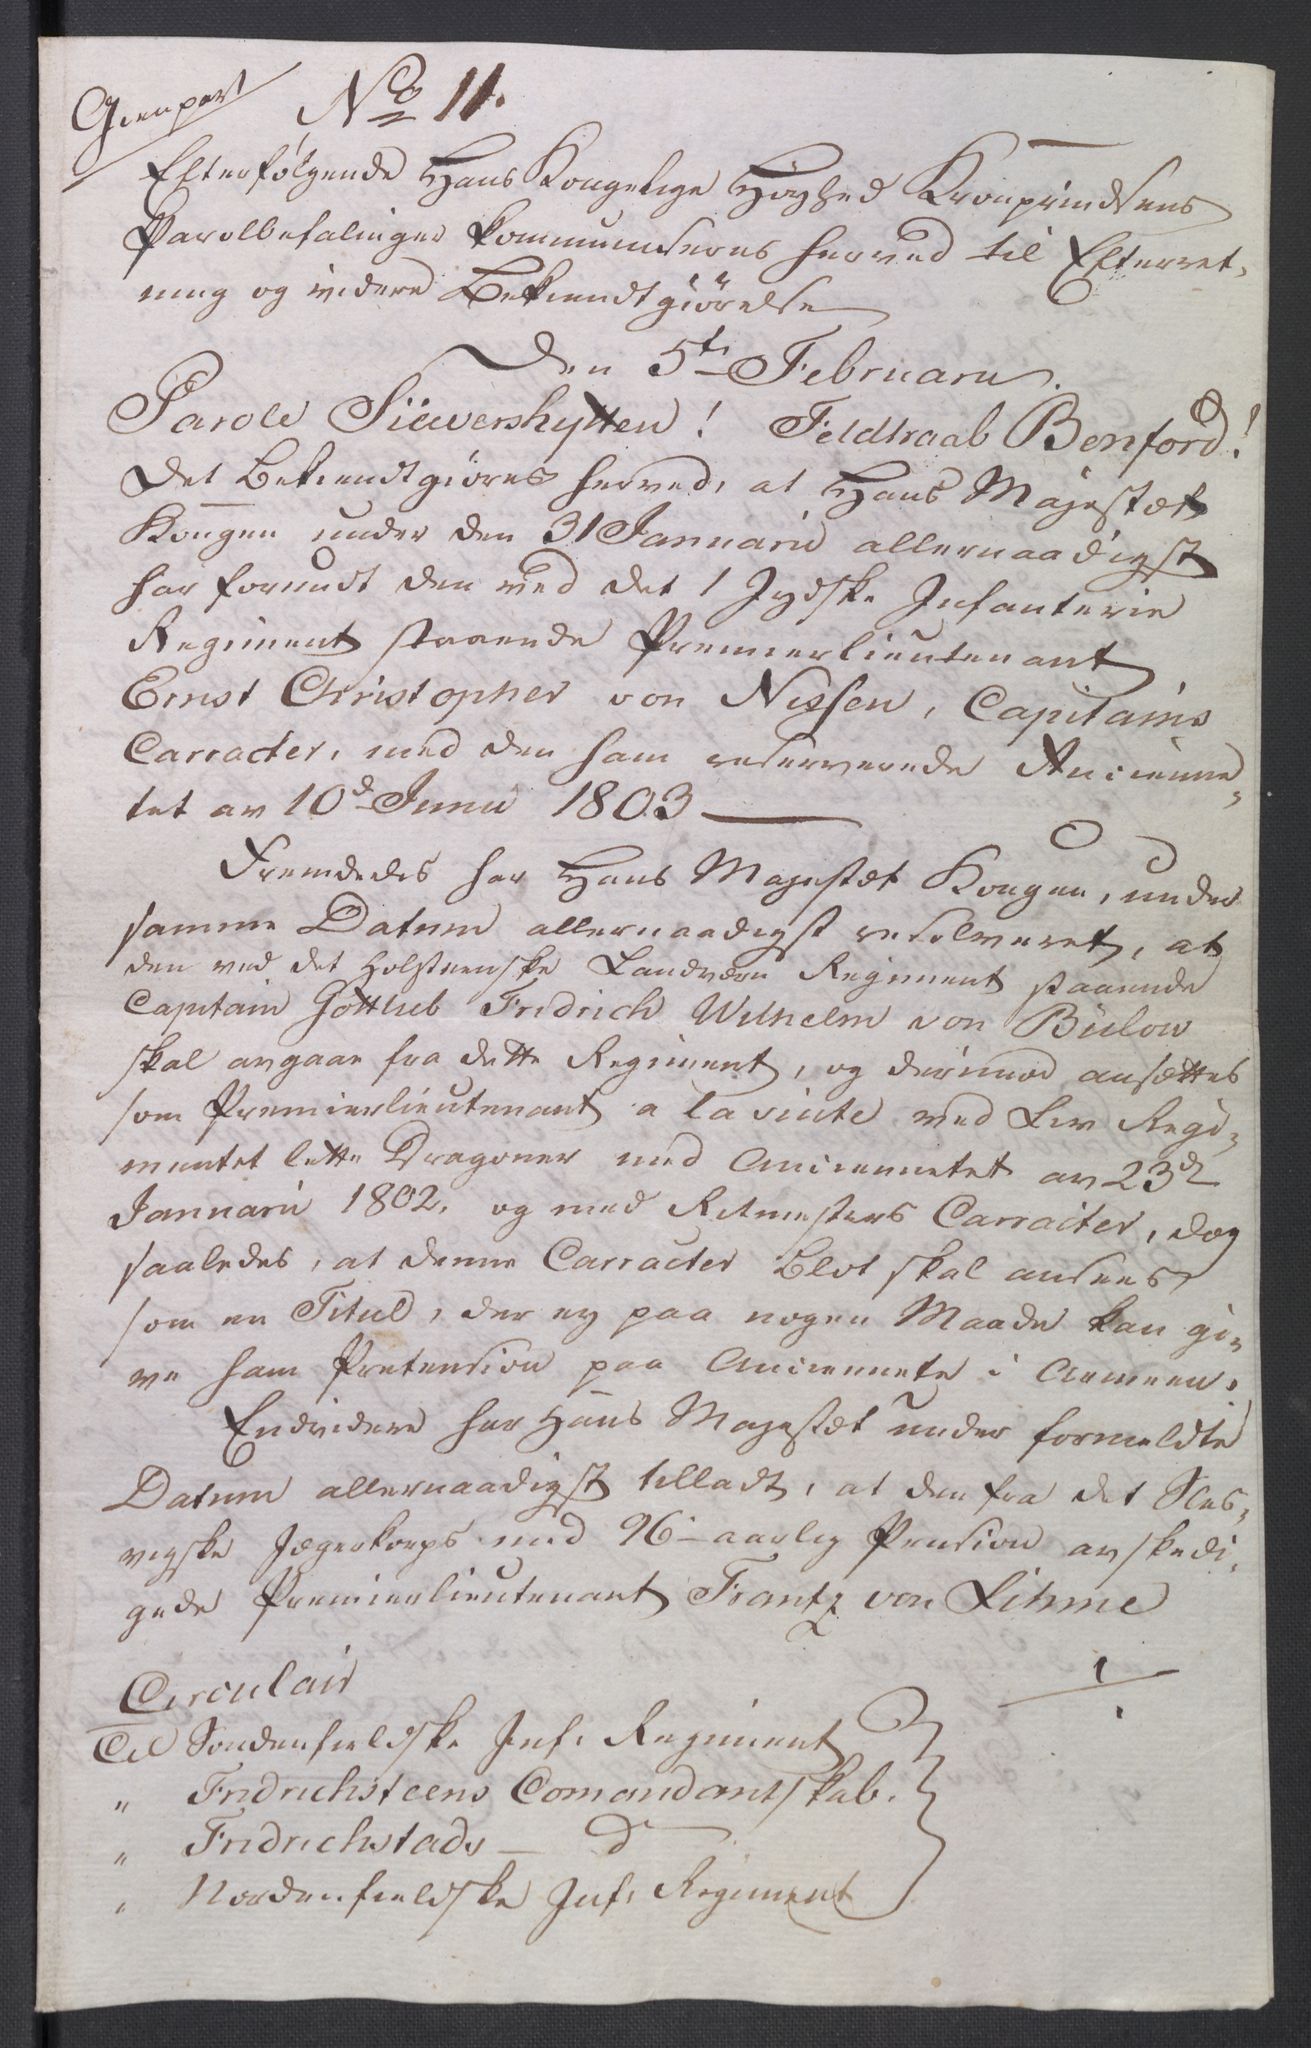 Gienpart
No 11.
Efterfølgende Hans Kongelige Høyhed Kronprindsens
Parolbefalinger kommuniseres herved til Efterret,
ning og videre Bekiendtgiörelse
Den 5te Februarii.
Parole Siæwershytten! Feldtraab Benford!
Det Bekiendtgiöres herved, at Hans Majestæt
Kongen under den 31 Januarii allernaadigst
har forundt den ved det 1 Jydske Infanterie
Regiment staaende Premierlieutenant
Ernst Christopher von Nissen, Capitains
Carracter, med den ham reserverede Ancienne,
tet av 10d Junii 1803
Fremdeles har Hans Majestæt Kongen, under
samme Datum allernaadigst resolveret, at
den ved det Holsteenske Landværn Regiment staaende
Capitain Gottlieb Fridrich Wilhelm von Bülow
skal avgaae fra dette Regiment, og derimod ansættes
som Premierlieutenant a la suite ved Liv Regi,
mentet lette Dragoner med Anciennetet av 23d
Januarii 1802. og med Ritmesters Carracter, dog
saaledes, at denne Carracter blot skal ansees
som en Titul, der ey paa nogen Maade kan gi,
ve ham Pretension paa Anciennete i Armeen.
Endvidere har Hans Majestæt under formeldte
Datum allernaadigst tilladt, at den fra det Sles,
vigske Jægerkorps med 96 aarlig Pension avskedi,
gede Premierlieutenant Frantz von Lihme
Circulair
Til Søndenfieldske Inf. Regiment
" Fridrichsteens Comandantskab.
" Fridrichstads — d
" Nordenfieldske Inf. Regiment